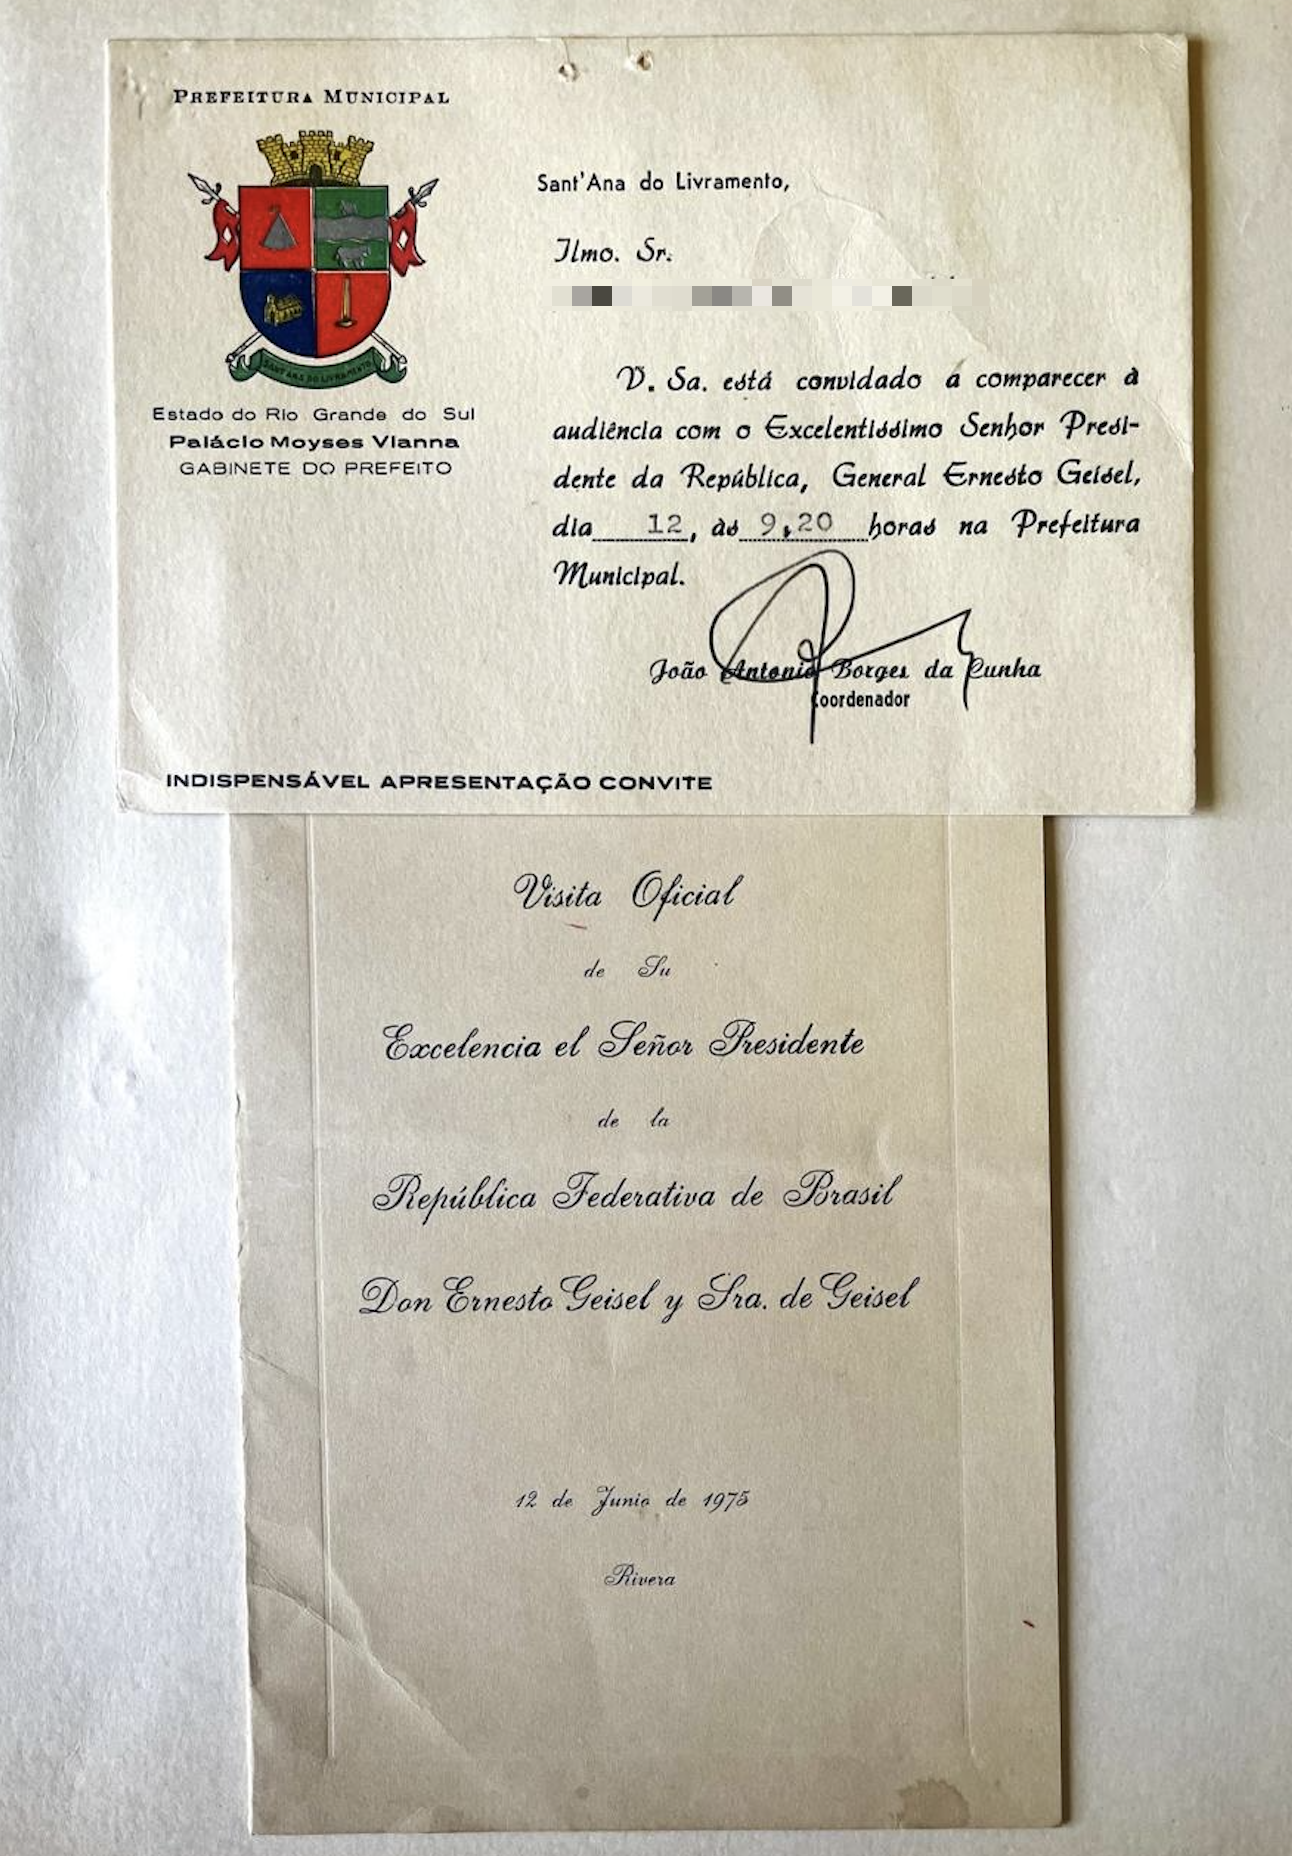 PREFEITURA MUNICIPAL
SANT'ANA DO LIVRAMENTO
Estado do Rio Grande do Sul
Palácio Moyses Vianna
GABINETE DO PREFEITO
Sant'Ana do Livramento,
Ilmo. Sr.
V. Sa. está convidado a comparecer à
audiência com o Excelentissimo Senhor Presi-
dente da República, General Ernesto Geisel,
dia 12, às 9,20 horas na Prefeitura
Municipal.
João Antonio Borges da Cunha
Coordenador
INDISPENSÁVEL APRESENTAÇÃO CONVITE
Visita Oficial
de Su
Excelencia el Señor Presidente
de la
República Federativa de Brasil
Don Ernesto Geisel y Sra. de Geisel
12 de Junio de 1975
Rivera